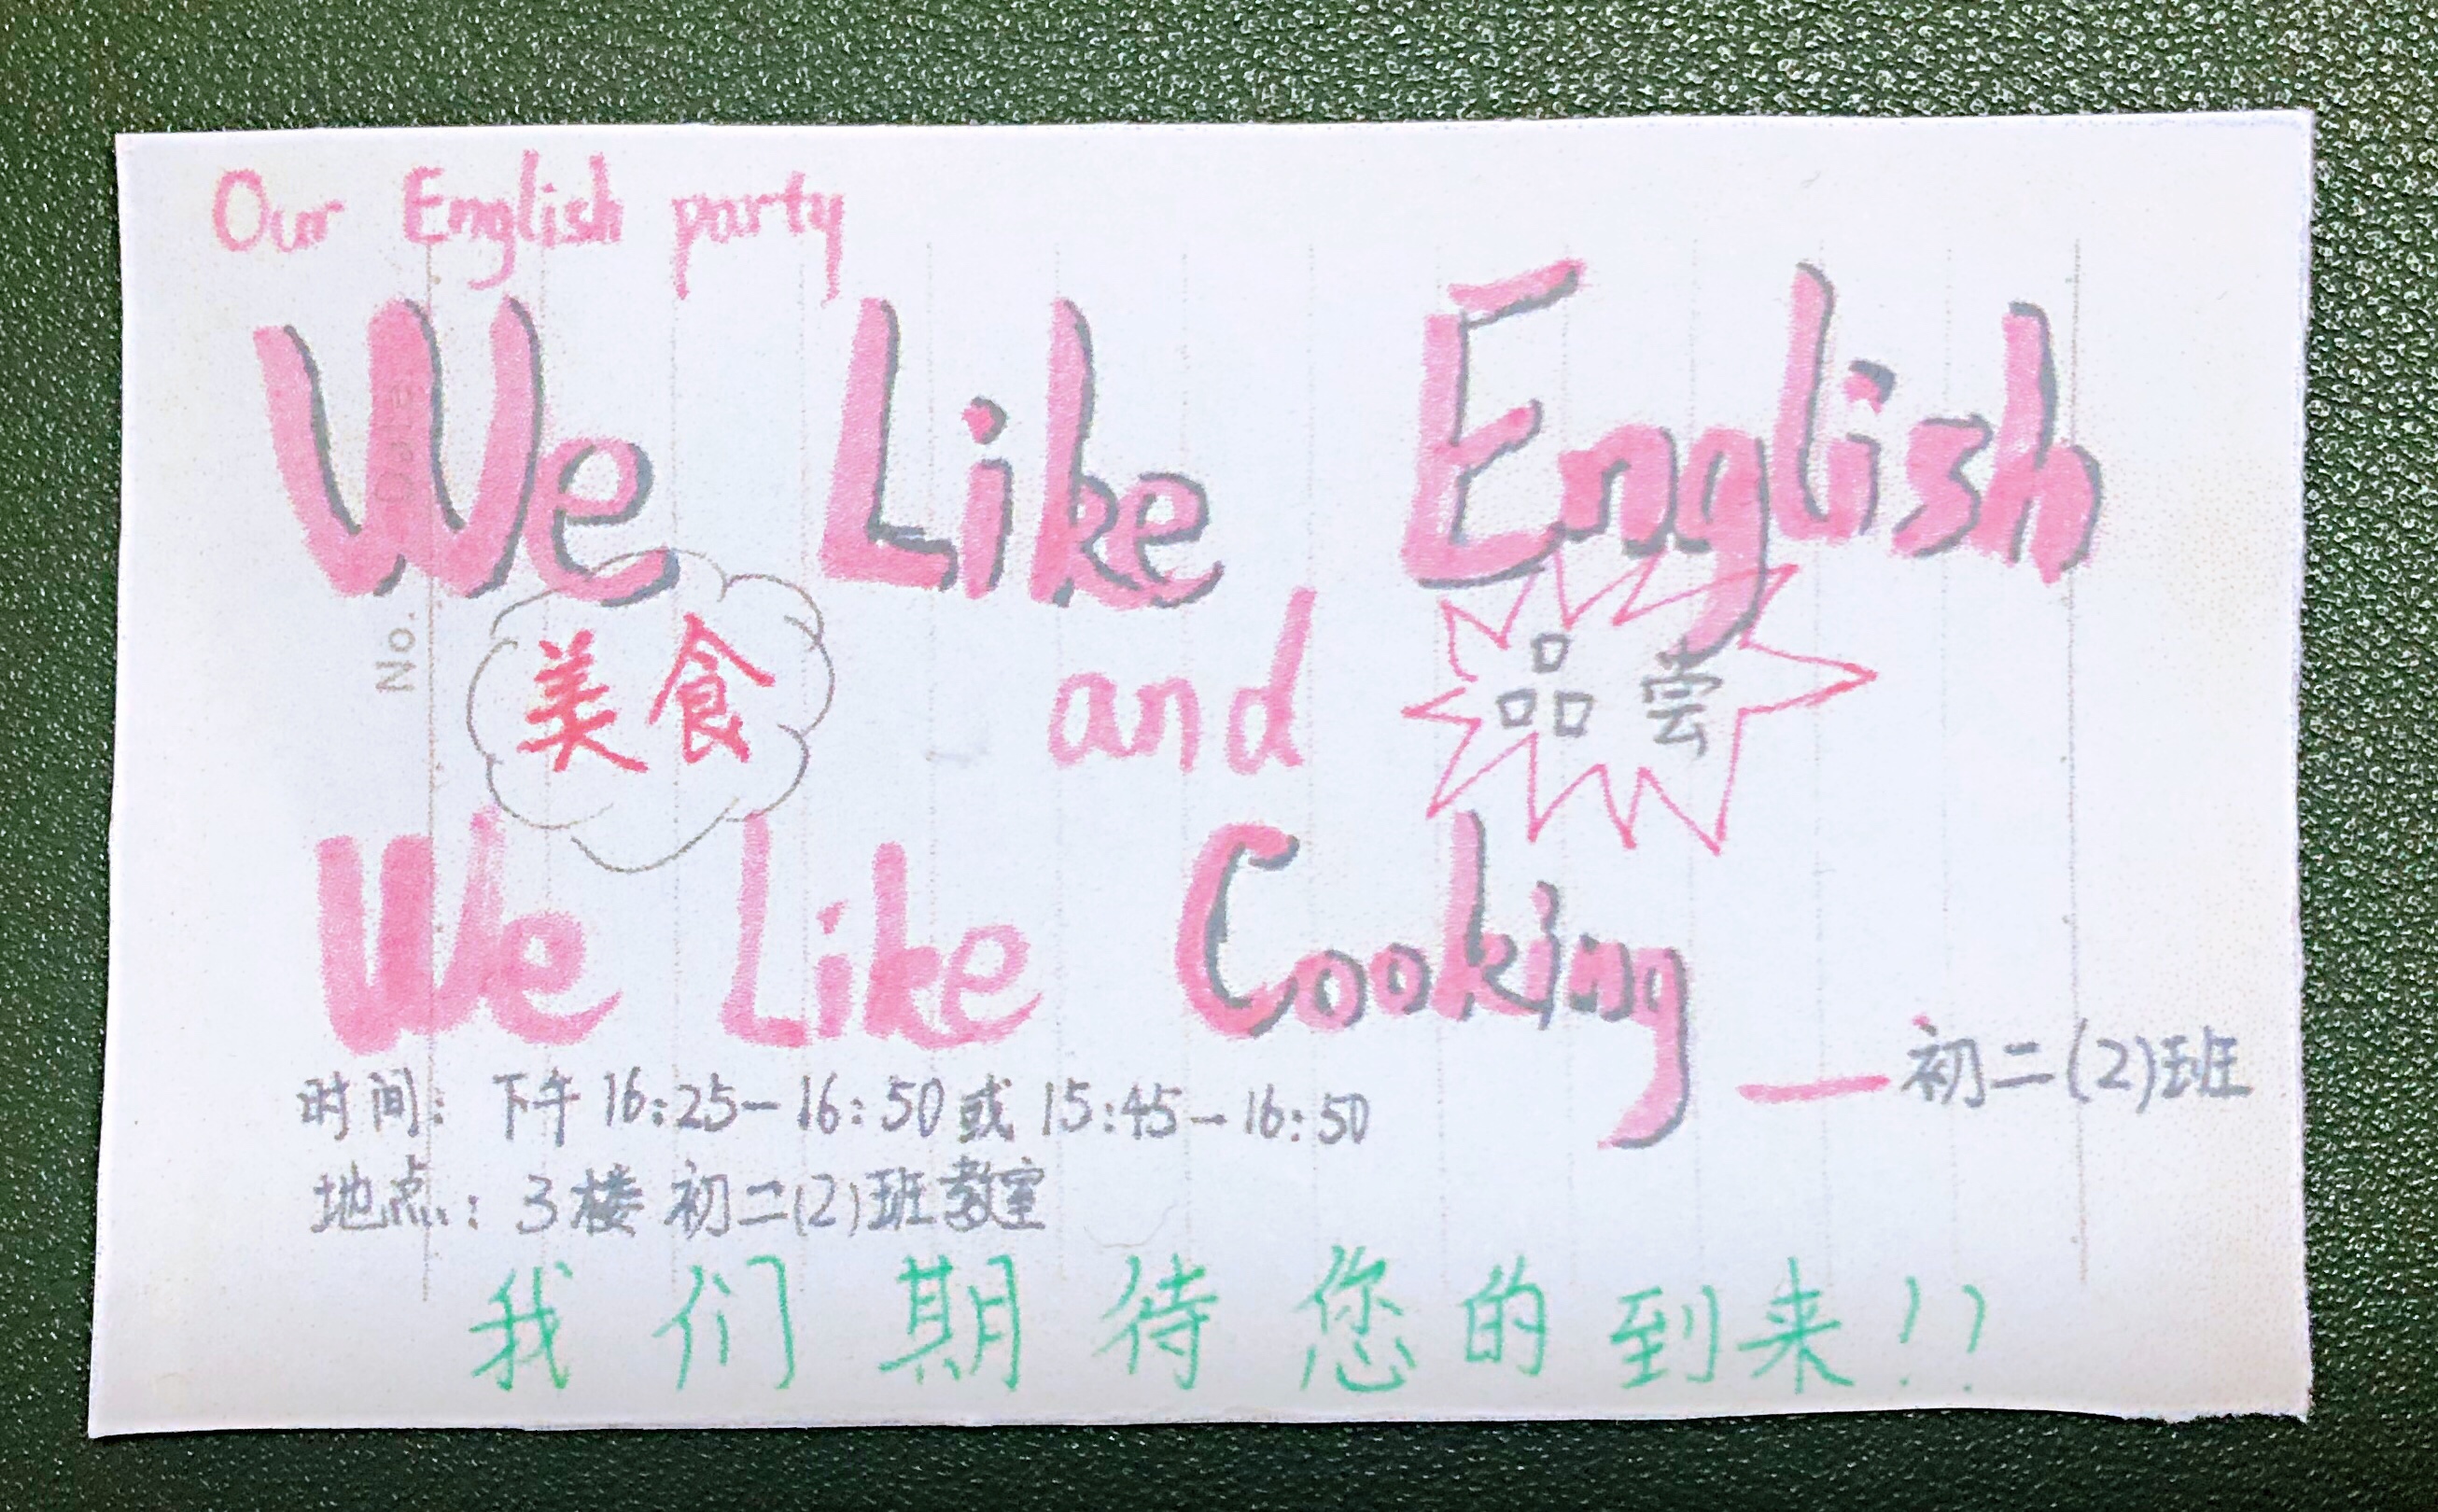 Our English party
We Like English
美食 and 品尝
We Like Cooking
——初二(2)班
时间：下午16:25—16:50或15:45—16:50
地点：3楼 初二(2)班教室
我们期待您的到来！！
No.
Date.